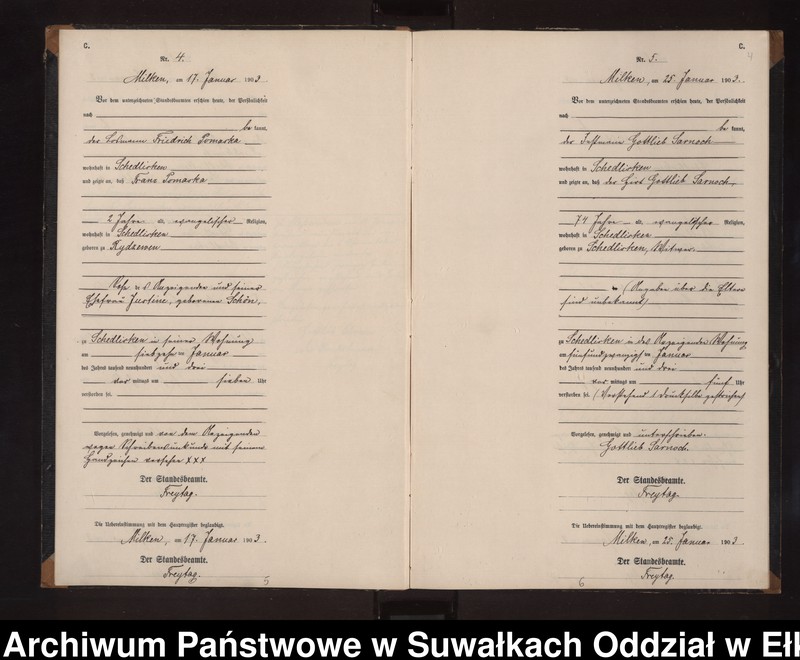 C.
Nr. 4.
Milken, am 17. Januar 1903
Vor dem unterzeichneten Standesbeamten erschien heute, der Persönlichkeit
nach
be kannt,
der Losmann Friedrich Pomarka
wohnhaft in Schedlisken
und zeigte an, daß Franz Pomarka
2 Jahre a. evangelischer Religion,
wohnhaft in Schedlisken
geboren zu Rydzewen
Sohn des Anzeigenden und seiner
Ehefrau Justine, geborenen Schön,
zu Schedlisken in seiner Wohnung
am siebzehnten Januar
des Jahres tausend neunhundert und drei
vor mittags um sieben Uhr
verstorben sei.
Vorgelesen, genehmigt und von dem Anzeigenden
wegen Schreibensunkunde mit seinem
Handzeichen versehen XXX
Der Standesbeamte.
Freytag.
Die Uebereinstimmung mit dem Hauptregister beglaubigt.
Milken, am 17. Januar 1903.
Der Standesbeamte.
Freytag.
5
C.
4
Nr. 5.
Milken, am 25. Januar 1903.
Vor dem unterzeichneten Standesbeamten erschien heute, der Persönlichkeit
nach
be kannt,
der Instmann Gottlieb Sarnoch
wohnhaft in Schedlisken
und zeigte an, daß der Gottlieb Sarnoch,
74 Jahre a. evangelischer Religion,
wohnhaft in Schedlisken
geboren zu Schedlisken, Witwer.
(Angaben über die Eltern
sind unbekannt)
zu Schedlisken in des Anzeigenden Wohnung
am fünfundzwanzigsten Januar
des Jahres tausend neunhundert und drei
vor mittags um fünf Uhr
verstorben sei. (Vorstehend 1 Druckstelle gestrichen)
Vorgelesen, genehmigt und unterschrieben.
Gottlieb Sarnoch.
Der Standesbeamte.
Freytag.
Die Uebereinstimmung mit dem Hauptregister beglaubigt.
Milken, am 25. Januar 1903.
Der Standesbeamte.
Freytag.
6
Archiwum Państwowe w Suwałkach Oddział w Ełk